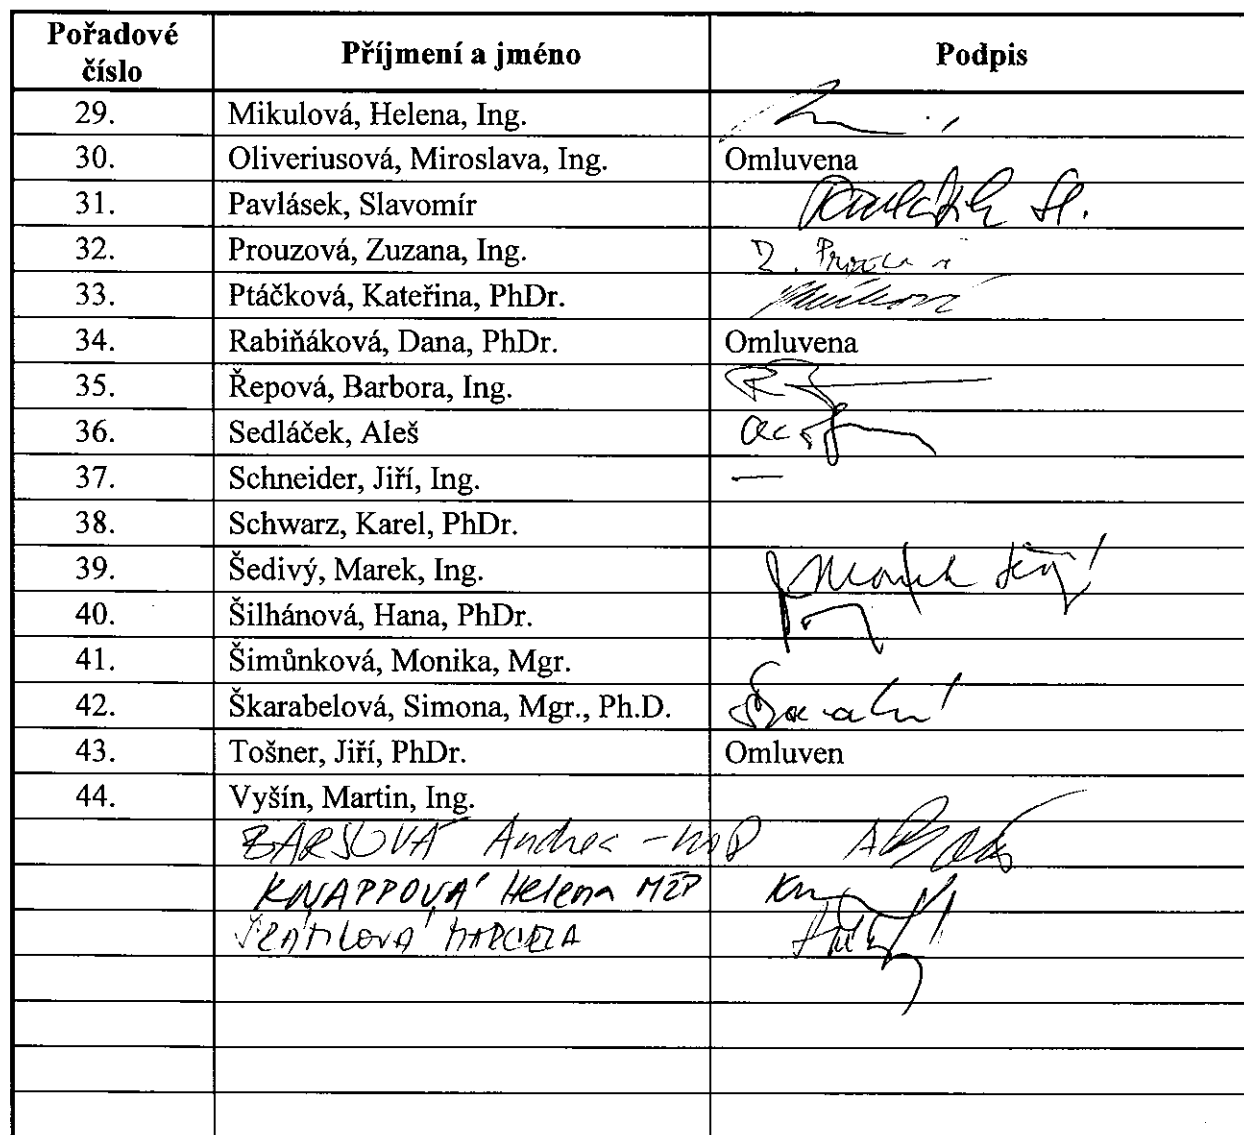 Pořadové číslo Příjmení a jméno Podpis
29. Mikulová, Helena, Ing.
30. Oliveriusová, Miroslava, Ing. Omluvena
31. Pavlásek, Slavomír
32. Prouzová, Zuzana, Ing.
33. Ptáčková, Kateřina, PhDr.
34. Rabiňáková, Dana, PhDr. Omluvena
35. Řepová, Barbora, Ing.
36. Sedláček, Aleš
37. Schneider, Jiří, Ing. —
38. Schwarz, Karel, PhDr.
39. Šedivý, Marek, Ing.
40. Šilhánová, Hana, PhDr.
41. Šimůnková, Monika, Mgr.
42. Škarabelová, Simona, Mgr., Ph.D.
43. Tošner, Jiří, PhDr. Omluven
44. Vyšín, Martin, Ing.
BARŠOVÁ Andrea
KNAPPOVÁ Helena MŽP